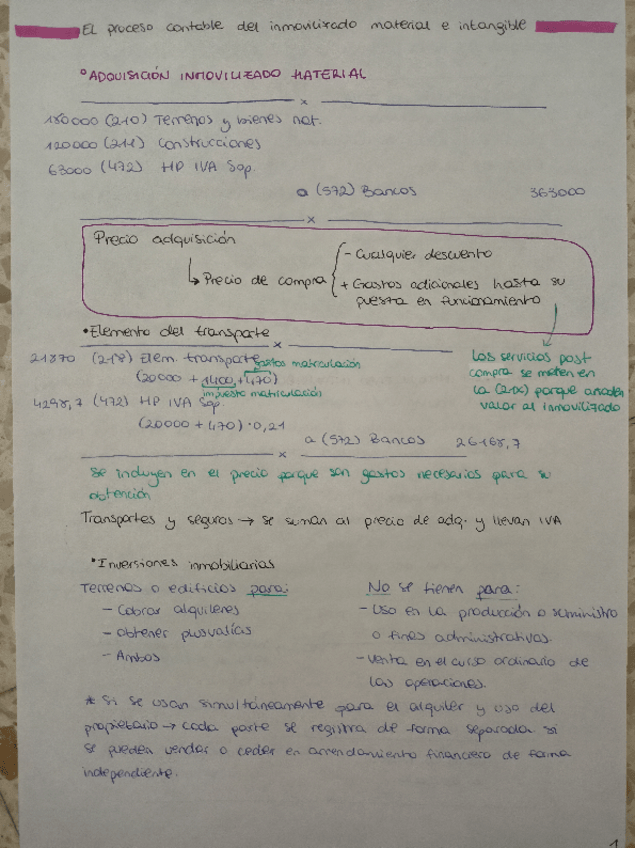 El proceso contable del inmovilizado material e intangible
°ADQUISICIÓN INMOVILIZADO MATERIAL
x
180000 (210) Terrenos y bienes nat.
120000 (211) Construcciones
63000 (472) HP IVA Sop.
a (572) Bancos 363000
x
Precio adquisición
↳ Precio de compra
- Cualquier descuento
+ Gastos adicionales hasta su
puesta en funcionamiento
•Elemento del transporte
x
21870 (218) Elem. transporte
gastos matriculación
(20000 + 1400 + 470)
impuesto matriculación
4298,7 (472) HP IVA Sop
(20000 + 470) · 0,21
a (572) Bancos 26168,7
x
Los servicios post
compra se meten en
la (21X) porque añaden
valor al inmovilizado
Se incluyen en el precio porque son gastos necesarios para su
obtención
Transportes y seguros → se suman al precio de adq. y llevan IVA
•Inversiones inmobiliarias
Terrenos o edificios para:
- Cobrar alquileres
- Obtener plusvalías
- Ambos
No se tienen para:
- Uso en la producción o suministro
o fines administrativos.
- Venta en el curso ordinario de
las operaciones.
* Si se usan simultáneamente para el alquiler y uso del
propietario → cada parte se registra de forma separada si
se pueden vender o ceder en arrendamiento financiero de forma
independiente.
1